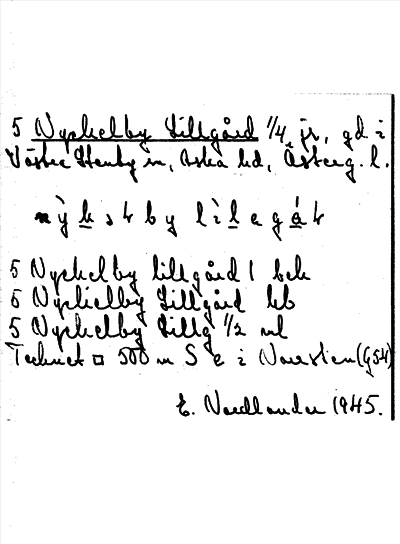 5 Nyckelby Lillgård 1/4, jr, gd i
Västra Stenby sn, Aska hd, Österg. l.
5 Nyckelby lillgård 1 bek
5 Nyckelby Lillgård kb
5 Nyckelby Lillg 1/2 ml
Tecknet □ 500 m S e i Norrstien (G54)
E. Nordlander 1945.